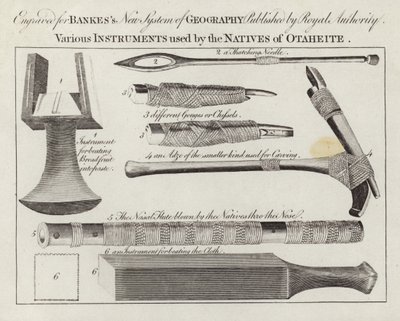 Engraved for BANKES's New System of GEOGRAPHY Published by Royal Authority.
Various INSTRUMENTS used by the NATIVES of OTAHEITE.
2 a Thatching Needle.
1
Instrument
for beating
Breadfruit
into paste.
3
3 different Gouges or Chissels.
3
4 an Adze of the smaller kind used for Carving.
4
5 The Nasal Flute blown by the Natives thro the Nose.
5
5
6 an Instrument for beating the Cloth.
6
6